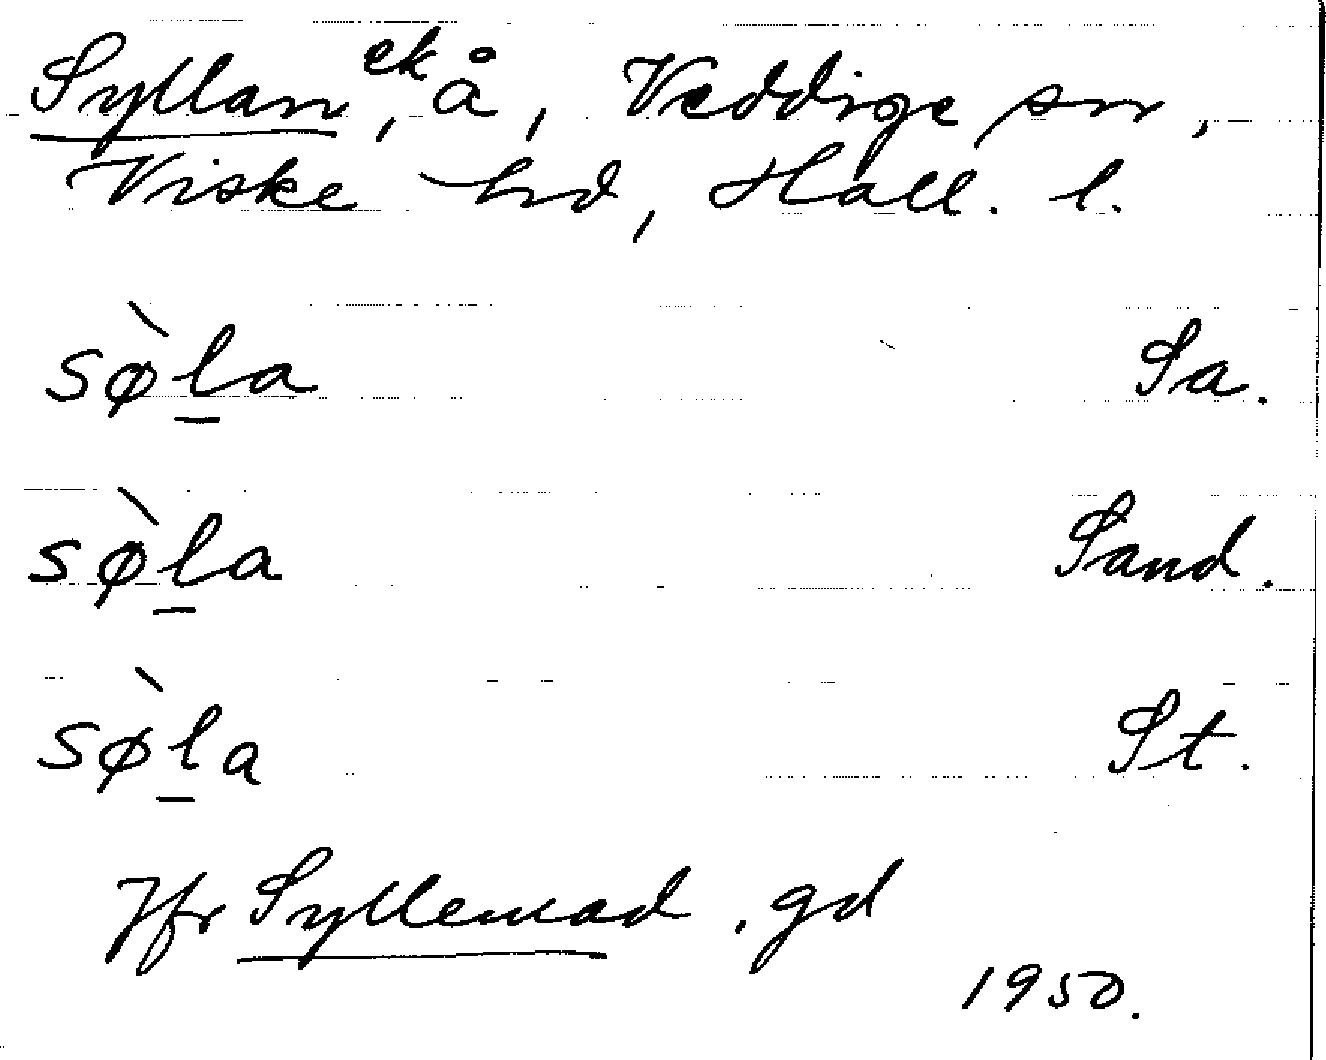 Syllan ek, å, Veddige sn,
Viske hd, Hall. l.
sø̀l̲a Sa.
sø̀l̲a Sand.
sø̀l̲a St.
Jfr Syllemad, gd
1950.